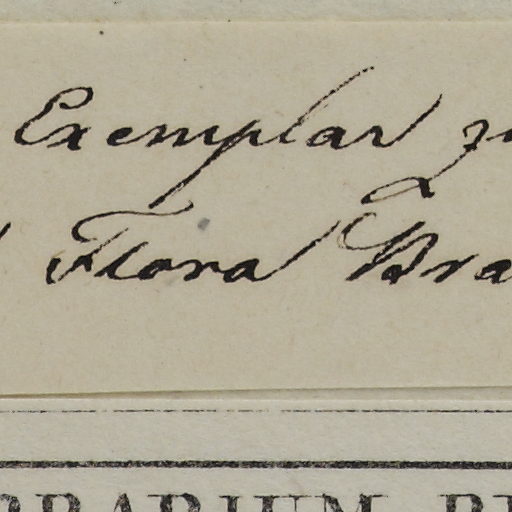 Exemplar zu
Flora Bra
RBARIUM